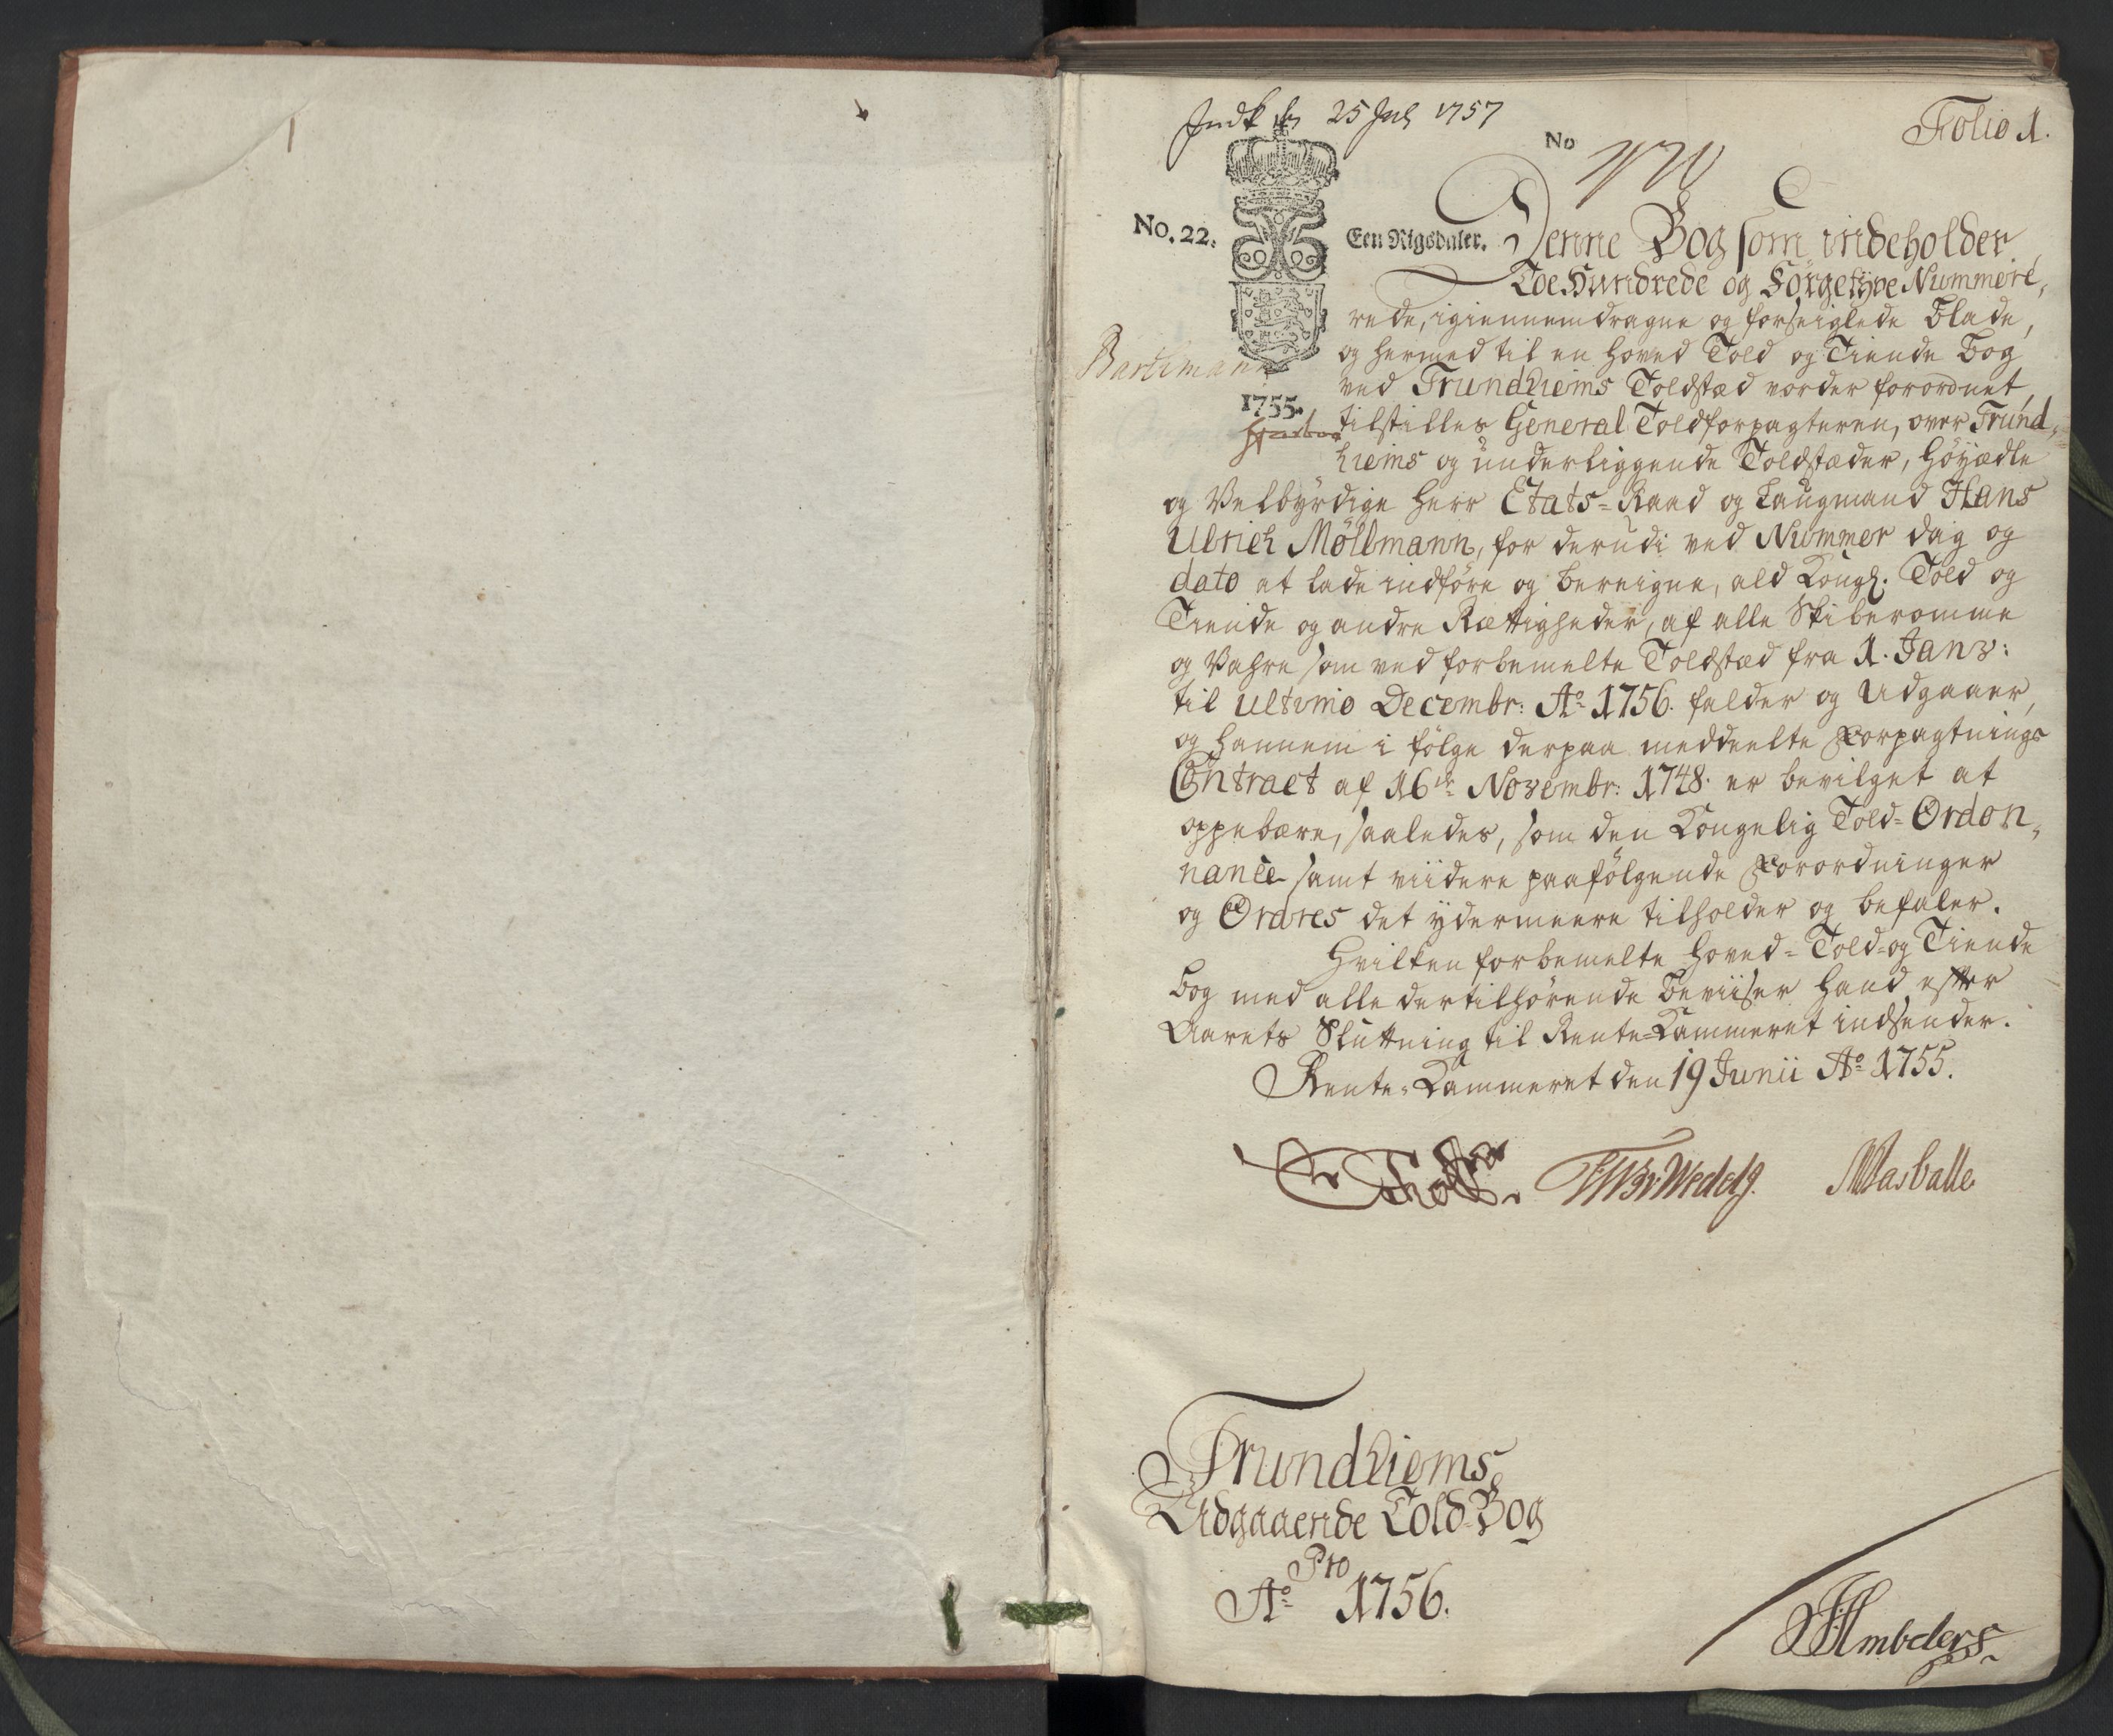 Indk d 25 Jul 1757
Folio 1.
No
No. 22.
Een Rigsdaler.
Denne Bog som indeholder
Toe Hundrede og Förgetÿve Nummere,
rede, igiennemdragne og forseiglede Blade,
og hermed til en Hoved Told og Tiende Bog
Bartimann
ved Trundhiems Toldstæd vorder forordnet,
1755.
tilstilles General Toldforpagteren, over Trund,
hiems og underliggende Toldstæder, Höÿædle
og Velbÿrdige Herr Etats=Raad og Laugmand Hans
Ulrich Möllmann, for derudi ved Nummer dag og
dato at lade indföre og bereigne, ald Kongl. Told og
Tiende og andre Rettigheder, af alle Skiberomme
og Vahre som ved forbemelte Toldstæd fra 1. Janv:
til Ultimo Decembr: Ao 1756. falder og Udgaaer,
og hannem i fölge derpaa meddeelte Forpagtnings
Contract af 16de Novembr: 1748. er bevilget at
oppebære, saaledes, som den Kongelig Told=Ordon,
nance samt viidere paafölgende Forordninger
og Ordres det ÿdermeere tilholder og befaler.
Hvilken forbemelte Hoved=Told=og Tiende
Bog med alle dertilhörende Beviiser hand efter
Aarets Slutning til Rente=Kammeret indsender.
Rente=Kammeret den 19 Junii Ao 1755.
Masballe
Trundhiems
Udgaaende Told=Bog
Pro
Ao 1756.